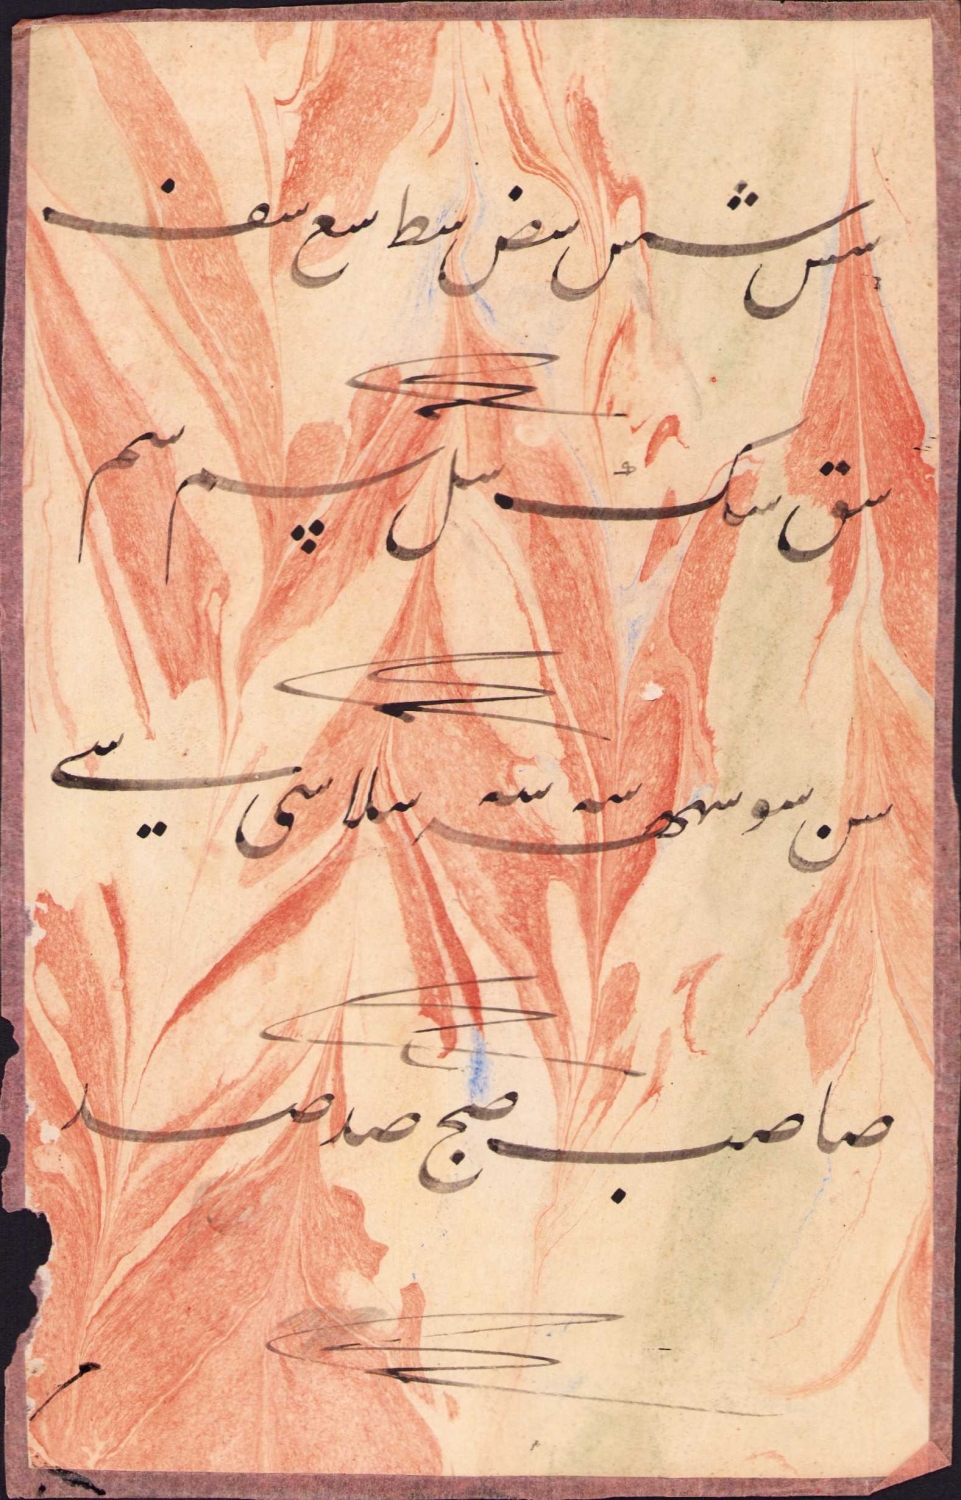 سس شمس سض سط سع سف
سق سک سل پسم سم
سن سو سهه سه سه سلا سی سے
صا صب صج صد صد